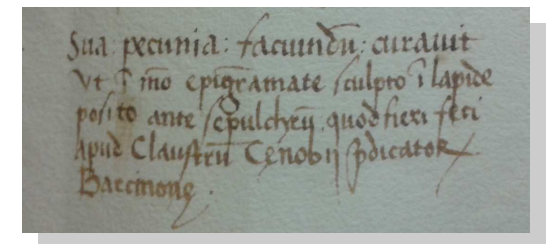 Sua pecunia: faciundũ: curauit
Vt ĩ mõ epigrãmate sculpto ĩ lapide
posito ante sepulchrũ quod fieri feci
apud Claustrũ Cęnobij p̃dicatoꝝ
Barcinonę.